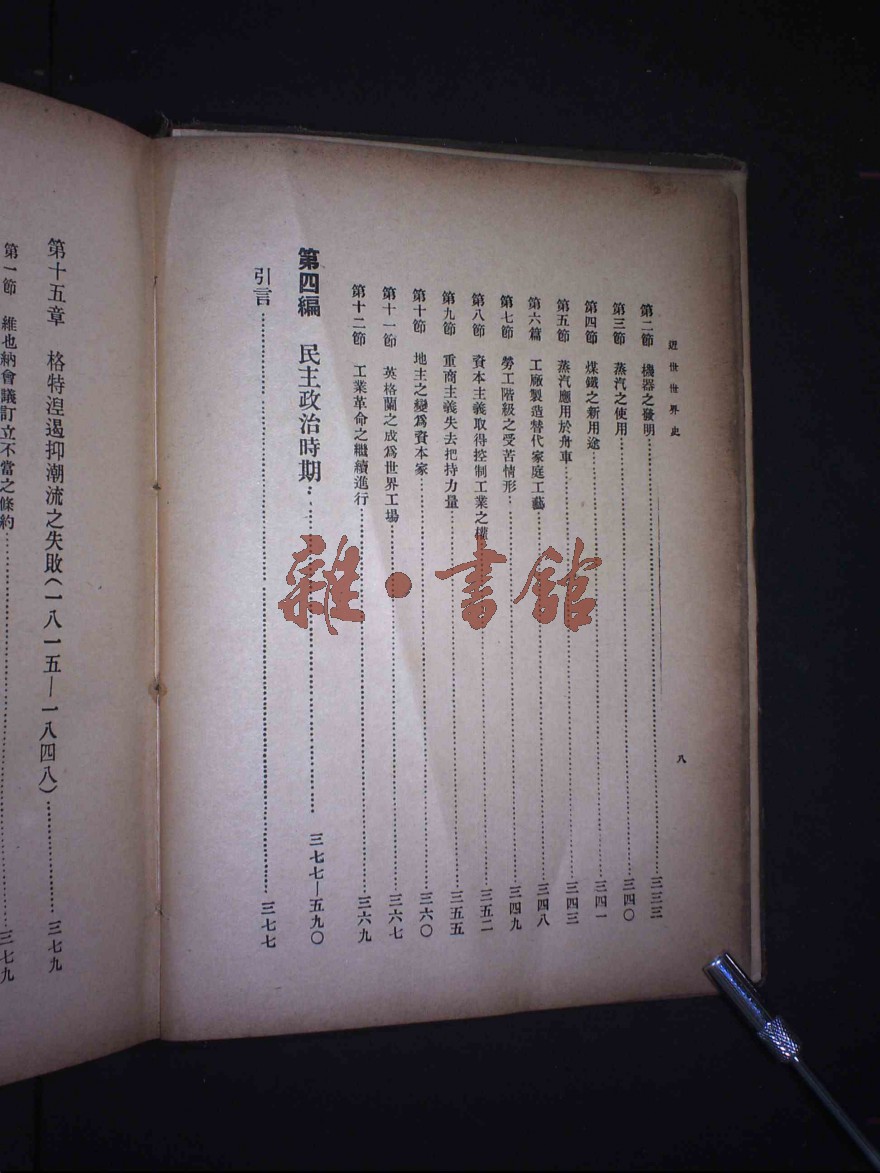 近世世界史
八
第二節 機器之發明…………三三三
第三節 蒸汽之使用…………三四〇
第四節 煤鐵之新用途…………三四一
第五節 蒸汽應用於舟車…………三四三
第六篇 工廠製造替代家庭工藝…………三四八
第七節 勞工階級之受苦情形…………三四九
第八節 資本主義取得控制工業之權…………三五二
第九節 重商主義失去把持力量…………三五五
第十節 地主之變爲資本家…………三六〇
第十一節 英格蘭之成爲世界工場…………三六七
第十二節 工業革命之繼續進行…………三六九
第四編 民主政治時期…………三七七—五九〇
引言…………三七七
第十五章 格特涅遏抑潮流之失敗(一八一五—一八四八)…………三七九
第一節 維也納會議訂立不當之條約…………三七九
雜·書館